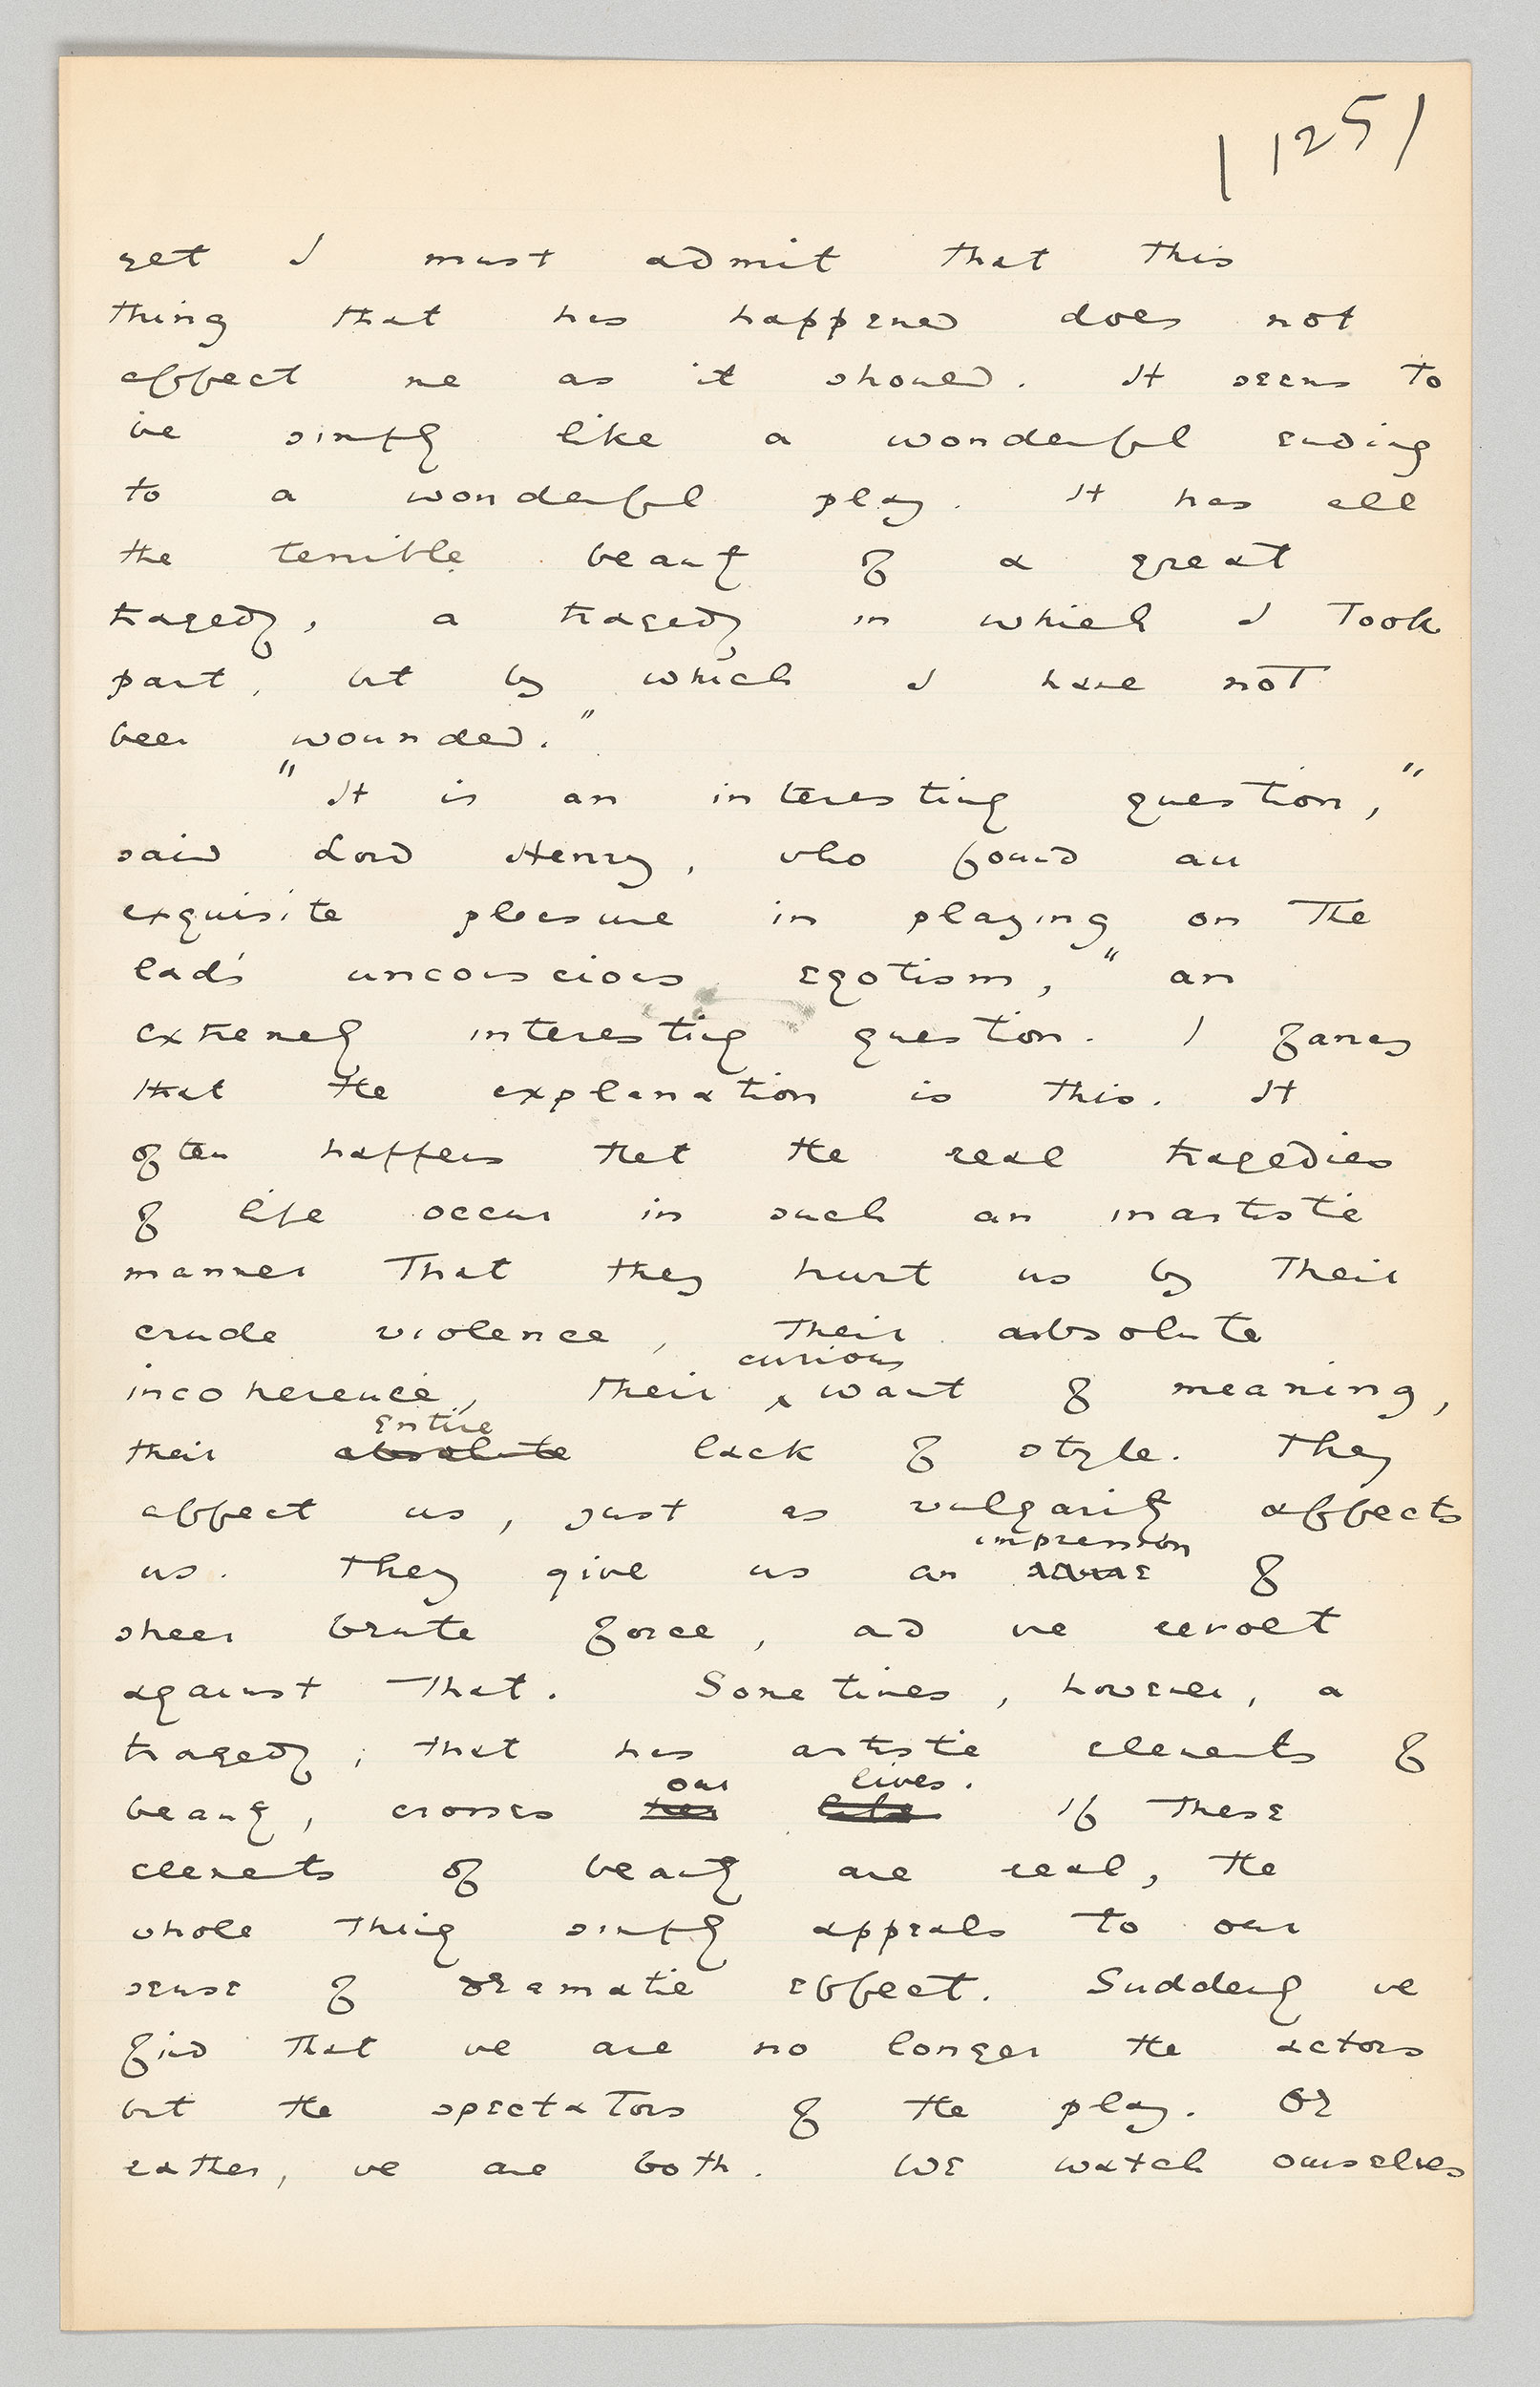 125
yet I must admit that this
thing that has happened does not
affect me as it should. It seems to
be simply like a wonderful ending
to a wonderful play. It has all
the terrible beauty of a great
tragedy, a tragedy in which I took
part, but by which I have not
been wounded."
"It is an interesting question,"
said Lord Henry, who found an
exquisite pleasure in playing on the
lad's unconscious egotism, "an
extremely interesting question. I fancy
that the explanation is this. It
often happens that the real tragedies
of life occur in such an inartistic
manner that they hurt us by their
crude violence, their absolute
curious
incoherence, their want of meaning,
entire
their absolute lack of style. They
affect us, just as vulgarity affects
impression
us. They give us an of
sheer brute force, and we revolt
against that. Sometimes, however, a
tragedy, that has artistic elements of
our lives.
beauty, crosses her life If these
elements of beauty are real, the
whole thing simply appeals to our
sense of dramatic effect. Suddenly we
find that we are no longer the actors
but the spectators of the play. Or
rather, we are both. We watch ourselves